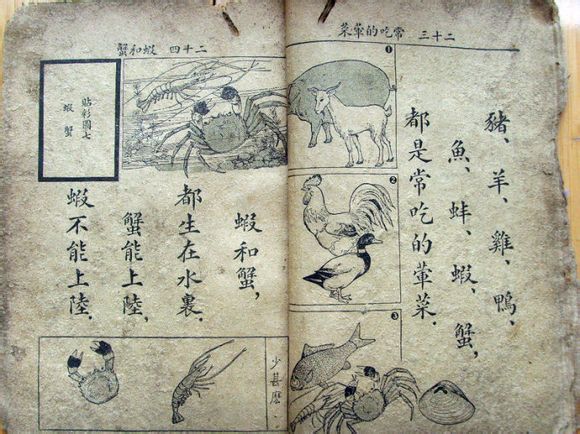 二十三 常吃的葷菜
豬、羊、雞、鴨、
魚、蚌、蝦、蟹，
都是常吃的葷菜．
1
2
3
二十四 蝦和蟹
蝦和蟹，
都生在水裏．
蟹能上陸，
蝦不能上陸．
貼彩圖七
蝦 蟹
少甚麼